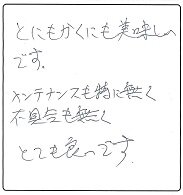 とにもかくにも美味しい
です。
メンテナンスも特に無く
不具合も無く
とても良いです